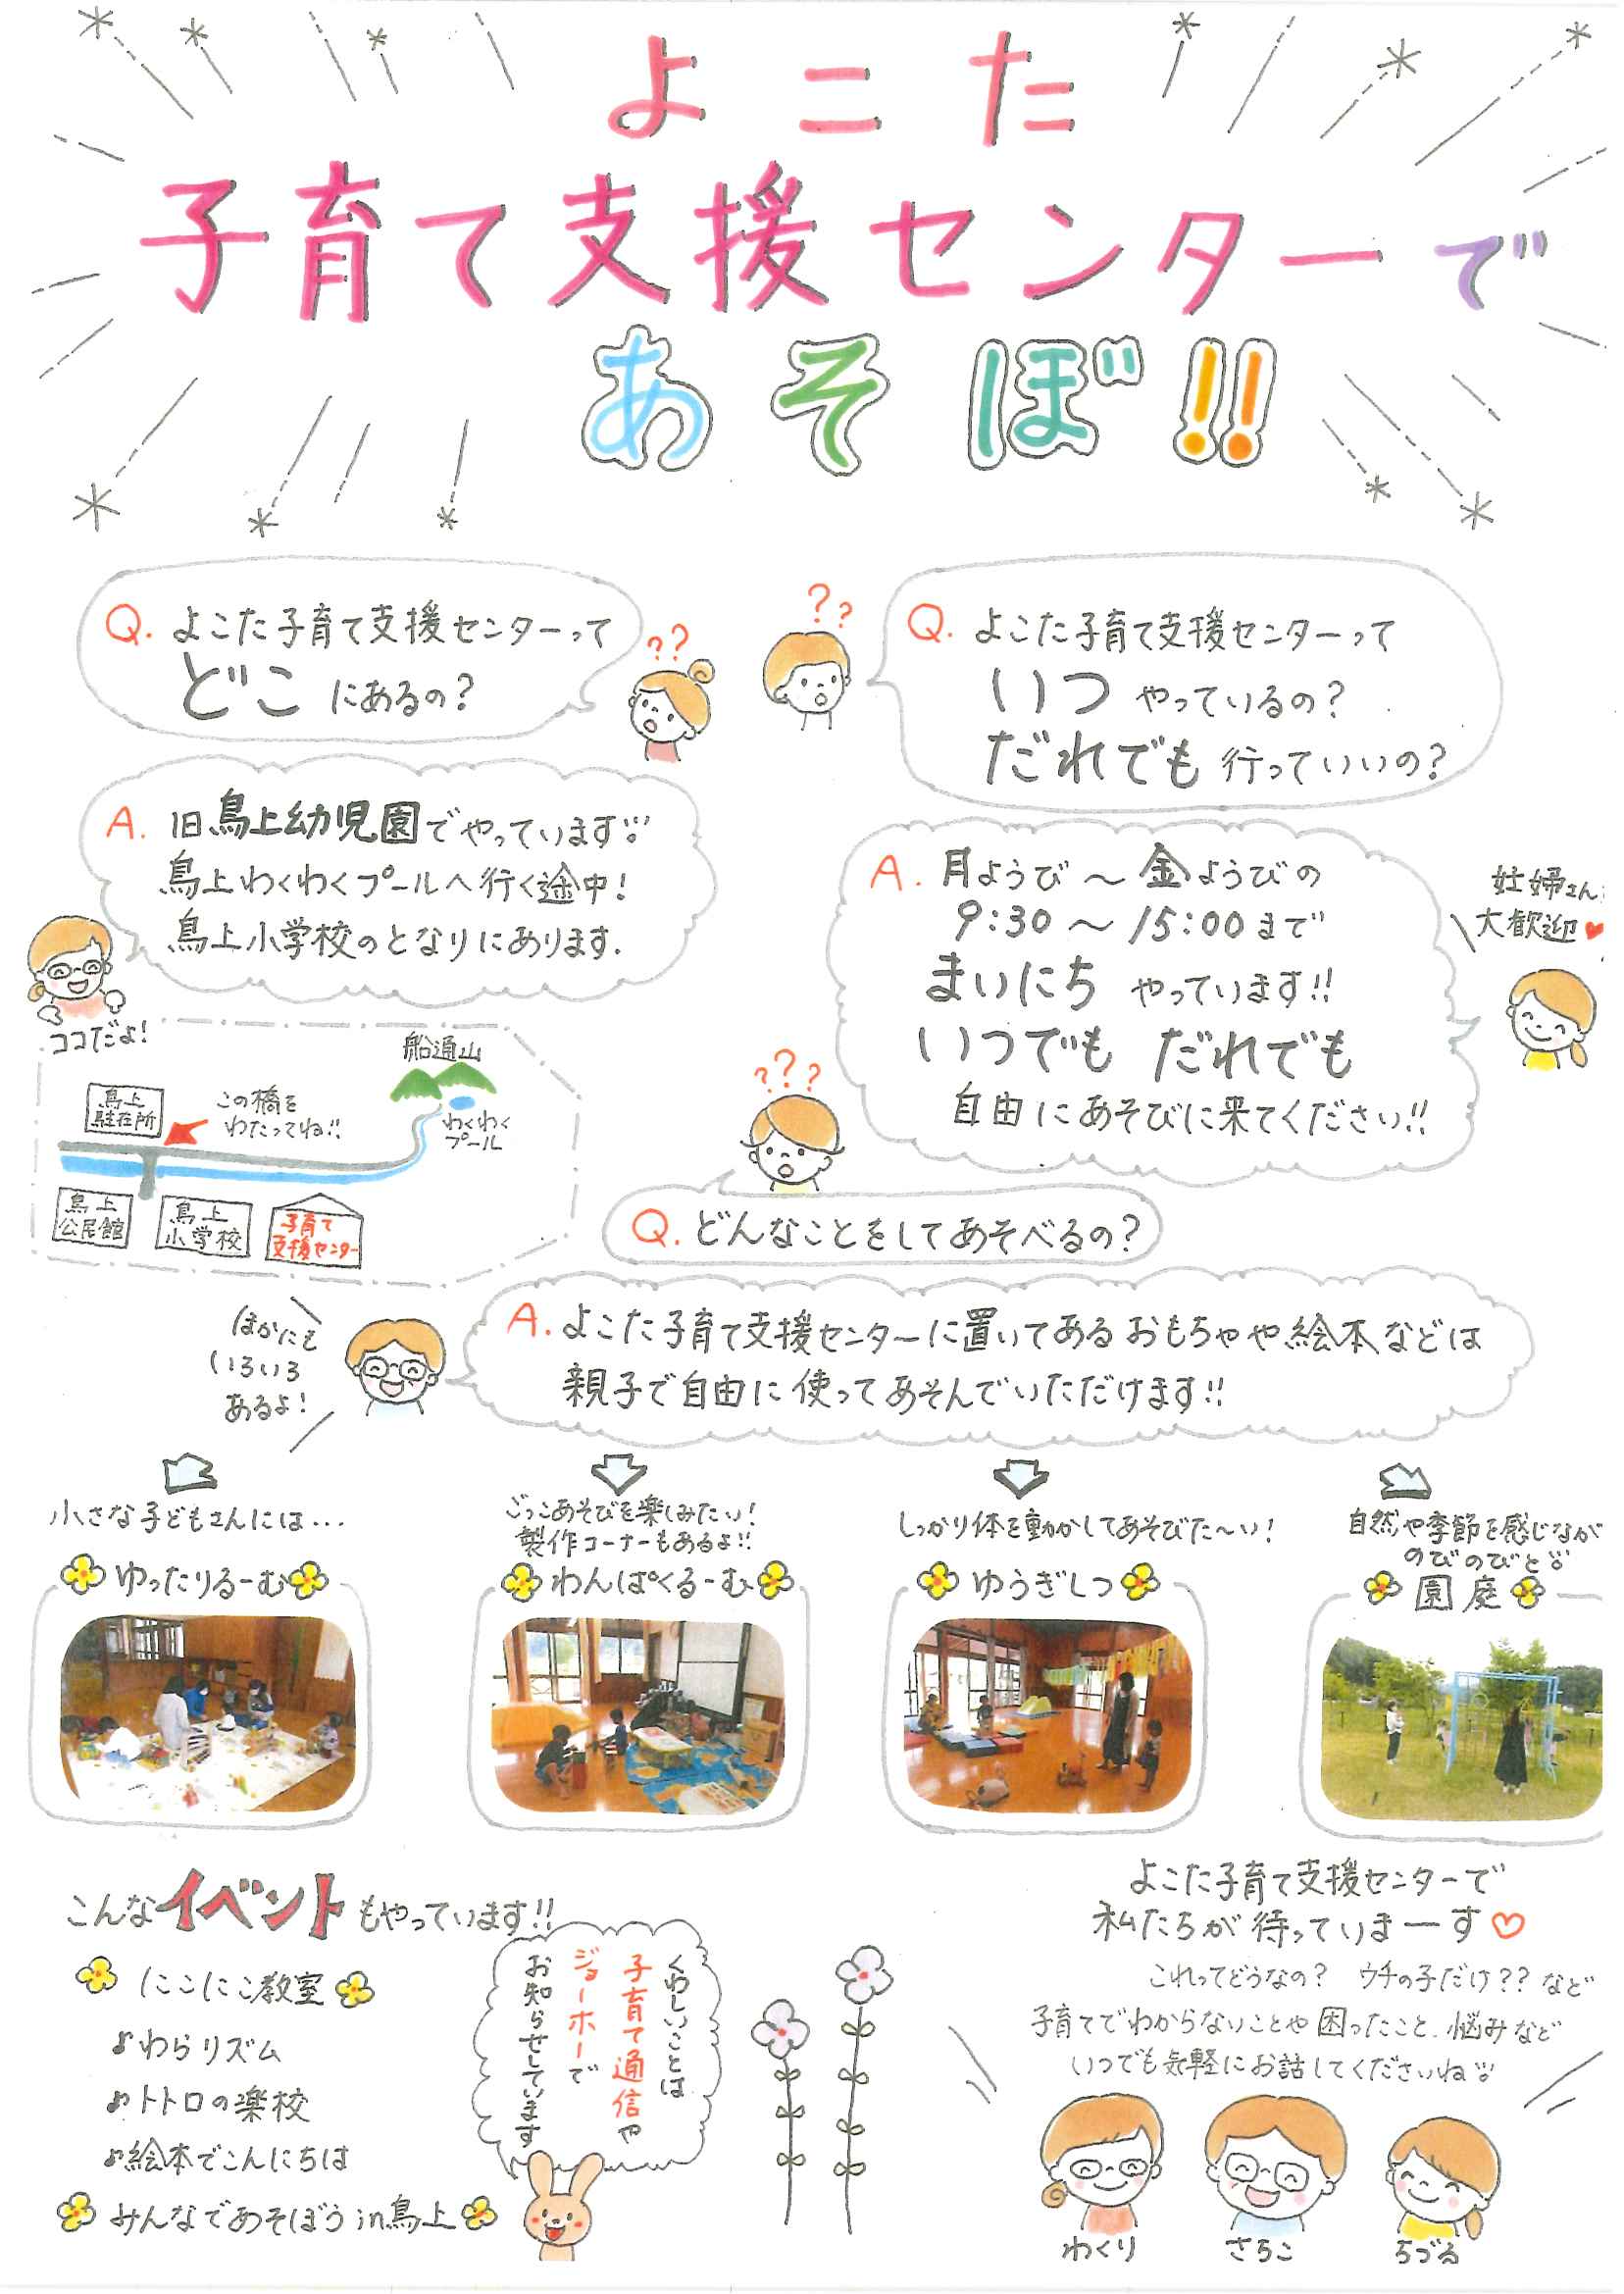 よこた
子育て支援センターで
あそぼ!!
Q. よこた子育て支援センターって
どこ にあるの?
?? 
Q. よこた子育て支援センターって
いつ やっているの?
だれでも 行っていいの?
??
A. 旧鳥上幼児園でやっています
鳥上わくわくプールへ行く途中!
鳥上小学校のとなりにあります.
ココだよ!
A. 月ようび〜金ようびの
9:30〜15:00まで
まいにち やっています!!
いつでも だれでも
自由にあそびに来てください!!
妊婦さん
大歓迎
船通山
わくわく
プール
鳥上
駐在所
この橋を
わたってね!!
鳥上
公民館
鳥上
小学校
子育て
支援センター
???
Q. どんなことをしてあそべるの?
A. よこた子育て支援センターに置いてあるおもちゃや絵本などは
親子で自由に使ってあそんでいただけます!!
ほかにも
いろいろ
あるよ!
小さな子どもさんには...
ゆったりるーむ
ごっこあそびを楽しみたい!
製作コーナーもあるよ!!
わんぱくるーむ
しっかり体を動かしてあそびた〜い!
ゆうぎしつ
自然や季節を感じなが
のびのびと
園庭
こんなイベントもやっています!!
にこにこ教室
♪わらリズム
♪トトロの楽校
♪絵本でこんにちは
みんなであそぼう in鳥上
くわしいことは
子育て通信や
ジョーホーで
お知らせしています
よこた子育て支援センターで
私たちが待っていまーす♡
これってどうなの? ウチの子だけ??など
子育てでわからないことや困ったこと、悩みなど
いつでも気軽にお話してくださいね
わくり
さちこ
ちづる